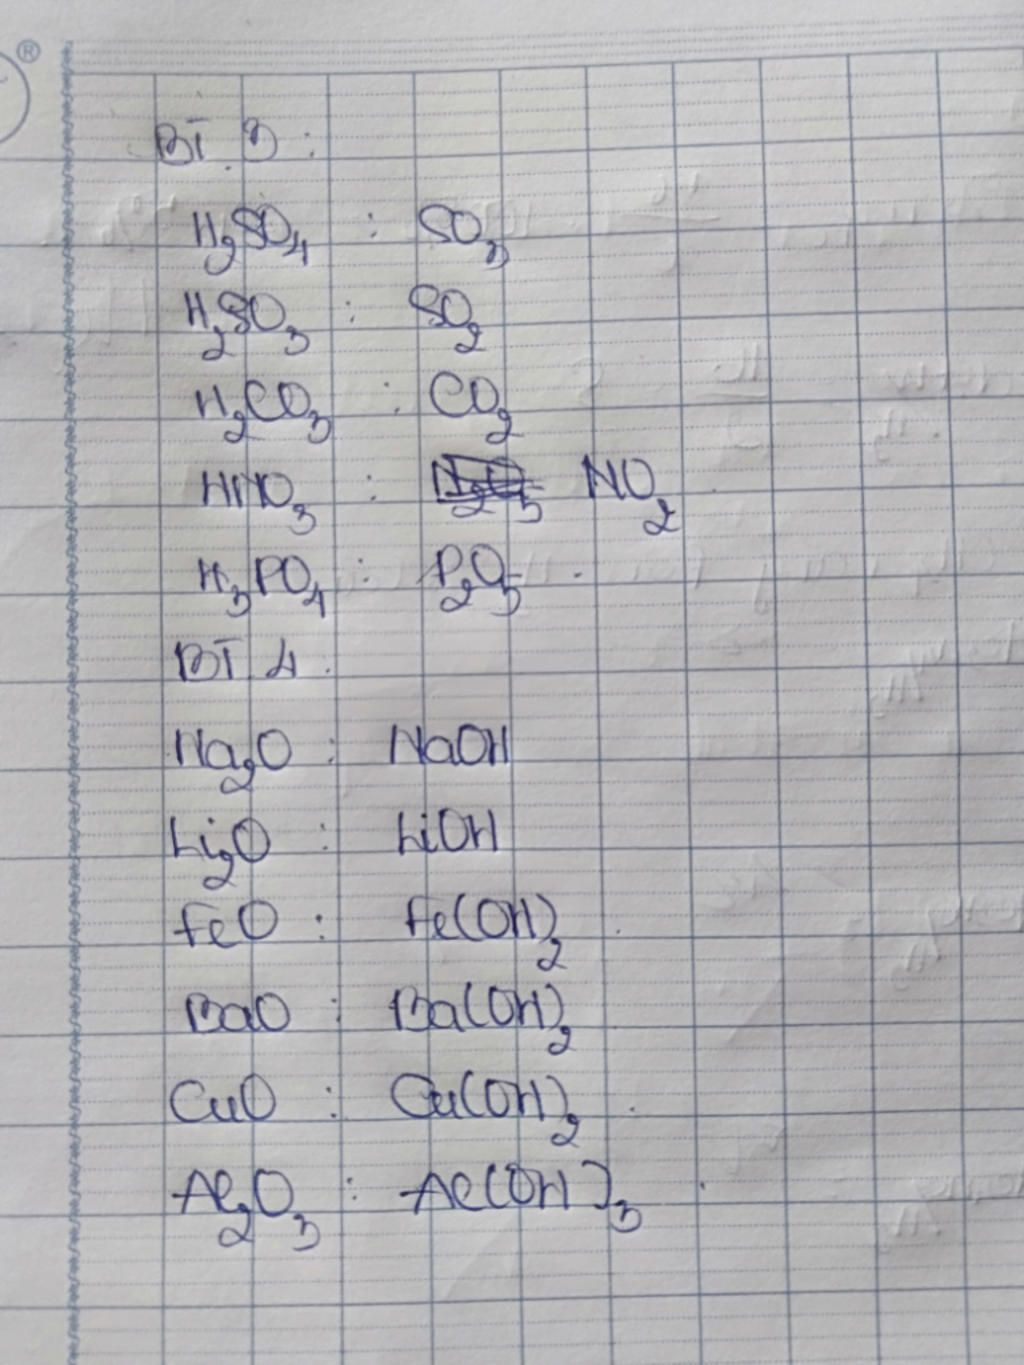 ®
BT 3:
H₂SO₄ : SO₃
H₂SO₃ : SO₂
H₂CO₃ : CO₂
HNO₃ : N₂O₅ NO₂
H₃PO₄ : P₂O₅.
BT 4.
Na₂O : NaOH
Li₂O : LiOH
FeO : Fe(OH)₂
BaO : Ba(OH)₂
CuO : Cu(OH)₂
Al₂O₃ : Al(OH)₃